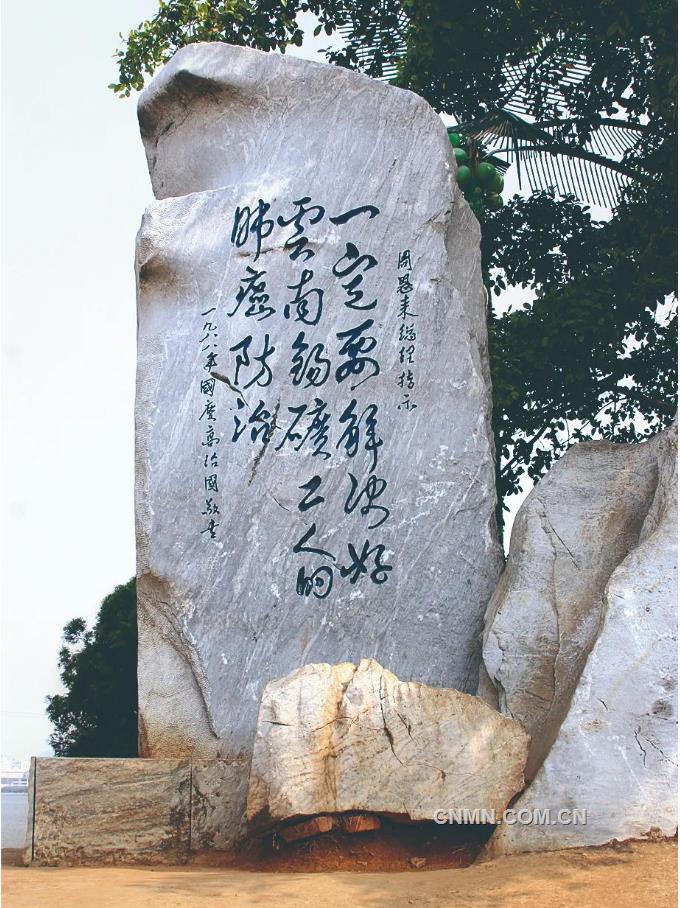 周恩来總理指示
一定要解决好
雲南錫礦工人的
肺癌防治
一九八八年國慶高治國敬書
CNMN.COM.CN